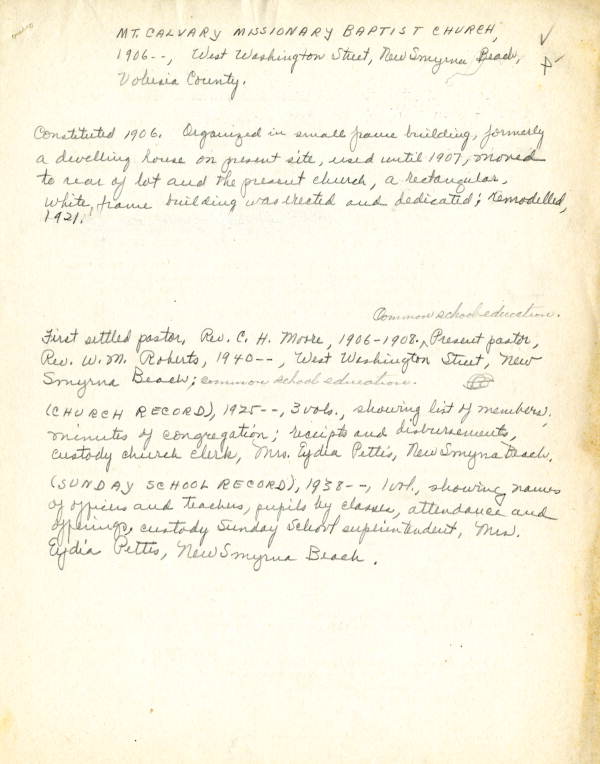 MT. CALVARY MISSIONARY BAPTIST CHURCH,
1906--, West Washington Street, New Smyrna Beach,
Volusia County.
Constituted 1906. Organized in small frame building, formerly
a dwelling house on present site, used until 1907, moved
to rear of lot and the present church, a rectangular,
white, frame building was erected and dedicated; remodelled,
1921.
Common school education.
First settled pastor, Rev. C. H. Moore, 1906-1908. ^ Present pastor,
Rev. W. M. Roberts, 1940--, West Washington Street, New
Smyrna Beach; common school education.
(CHURCH RECORD), 1925--, 3 vols., showing list of members,
minutes of congregation; receipts and disbursements,
custody church clerk, Mrs. Eydia Pettis, New Smyrna Beach.
(SUNDAY SCHOOL RECORD), 1938--, 1 vol., showing names
of officers and teachers, pupils by classes, attendance and
offerings, custody Sunday School superintendent, Mrs.
Eydia Pettis, New Smyrna Beach.